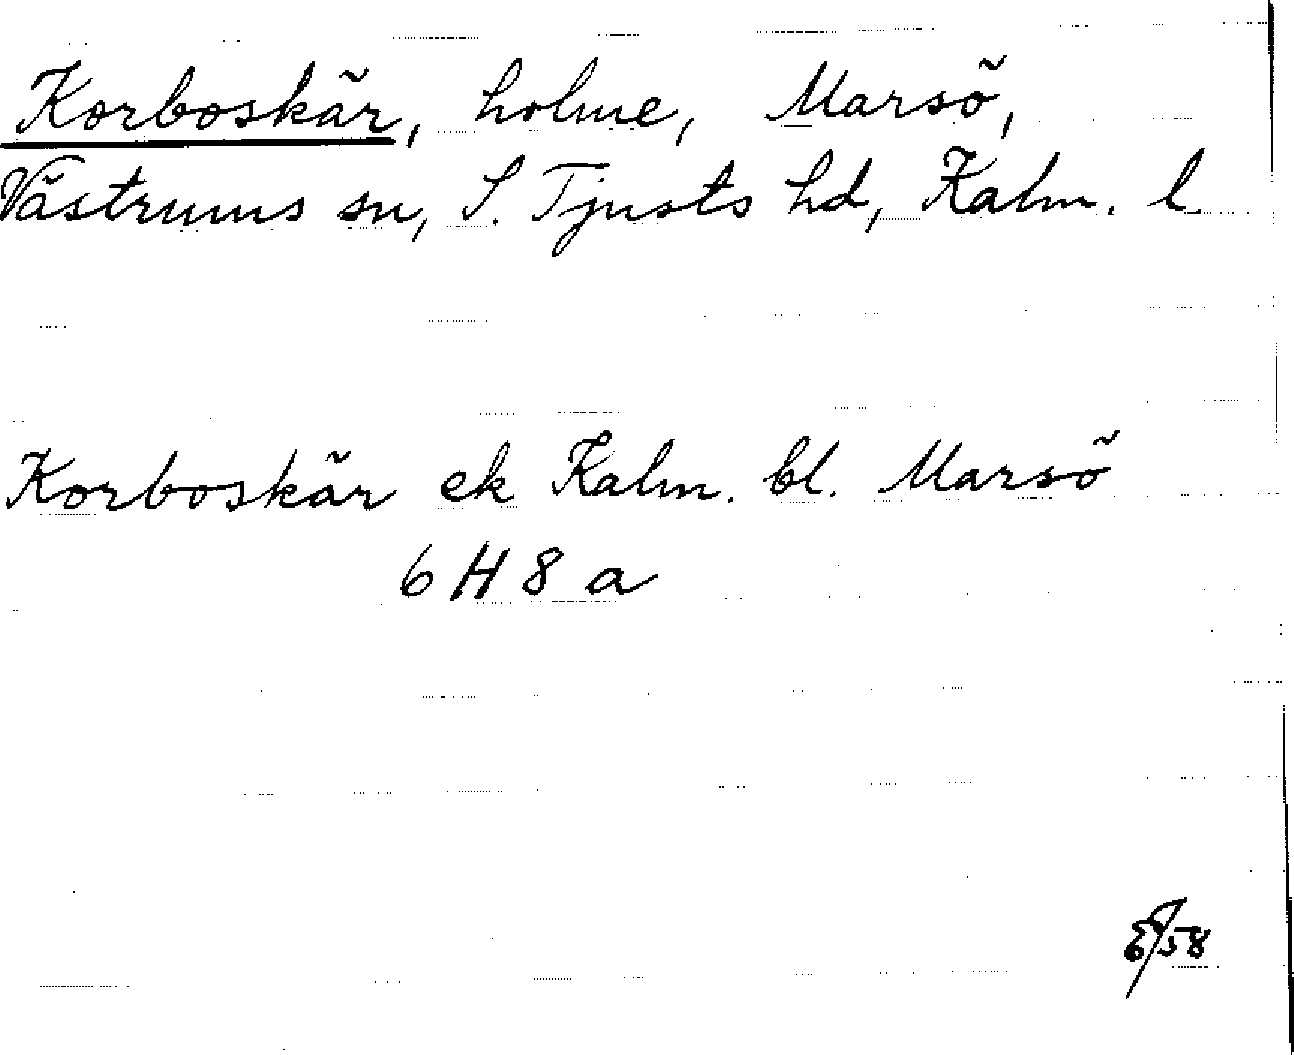 Korboskär, holme, Marsö,
Västrums sn, S. Tjusts hd, Kalm. l
Korboskär ek Kalm. bl. Marsö
6 H 8 a
58